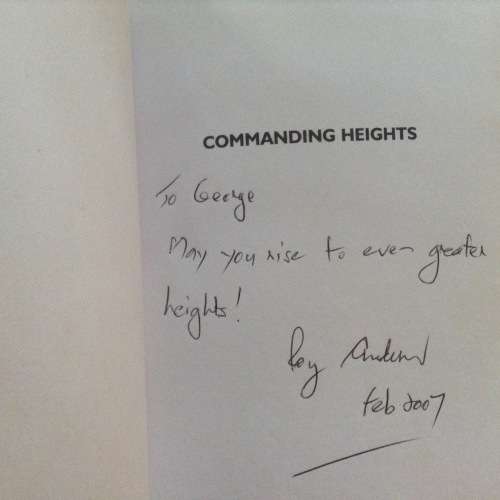 COMMANDING HEIGHTS
To George
May you rise to even greater
heights!
Roy
Feb 2007